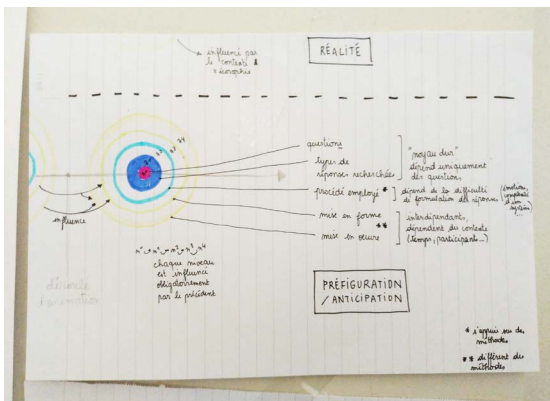 influencé par
le contexte &
RÉALITÉ
questions
types de
réponses recherchées
"noyau dur"
dépend uniquement
des questions
procédé employé *
dépend de la difficulté
de formulation des réponses
(émotion,
complexité
d'un
système
...)
mise en forme
**
mise en œuvre
interdépendants,
dépendent du contexte
(temps, participants...)
influence
n° n1 n2 n3 n4
chaque niveau
est influencé
obligatoirement
par le précédent
PRÉFIGURATION
/ ANTICIPATION
* s'appuie sur des
méthodes
** différent des
méthodes